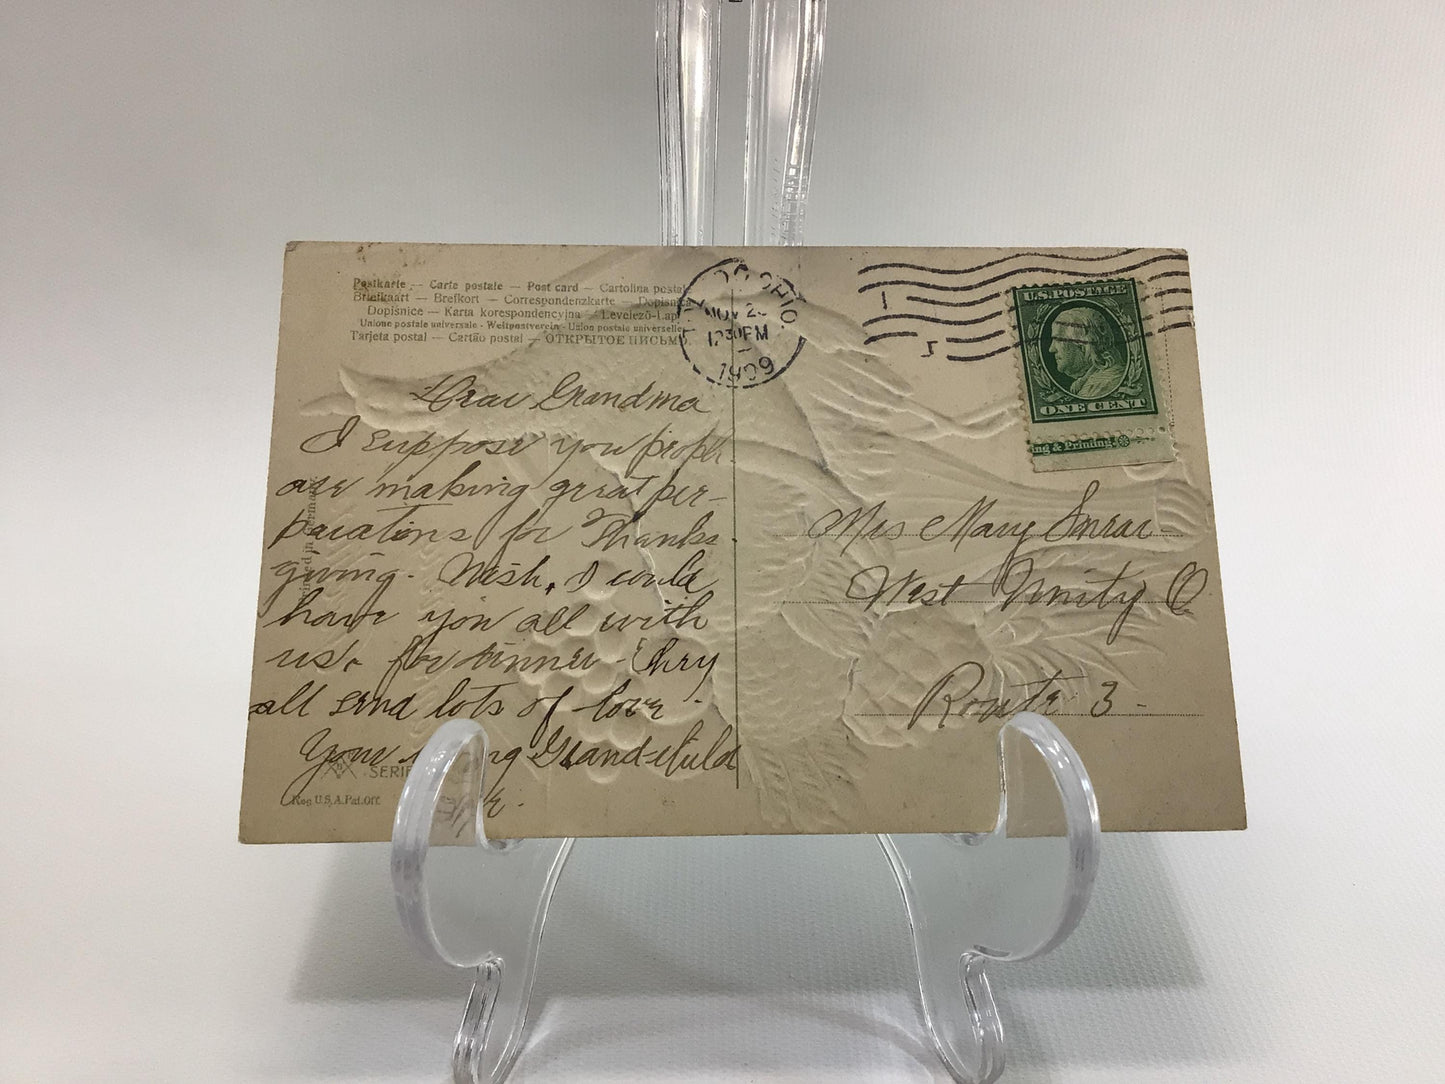 Postkarte — Carte postale — Post card — Cartolina postale
Briefkaart — Brefkort — Correspondenzkarte — Dopisnica
Dopisnice — Karta korespondencyjna — Levelező-Lap
Unione postale universale - Weltpostverein - Union postale universelle
Tarjeta postal — Cartão postal — ОТКРЫТОЕ ПИСЬМО.
OHIO.
NOV
12 30 PM
1909
1
U.S. POSTAGE
ONE CENT
ing & Printing.
Dear Grandma
I suppose you people
are making great per-
parations for Thanks-
giving. Wish, I could
have you all with
us, for dinner. They
all send lots of love.
Your Grand-child
Printed in Germany
SERIE
Reg U.S.A. Pat. Off.
Mrs Mary Smear
West Unity O
Route 3 -